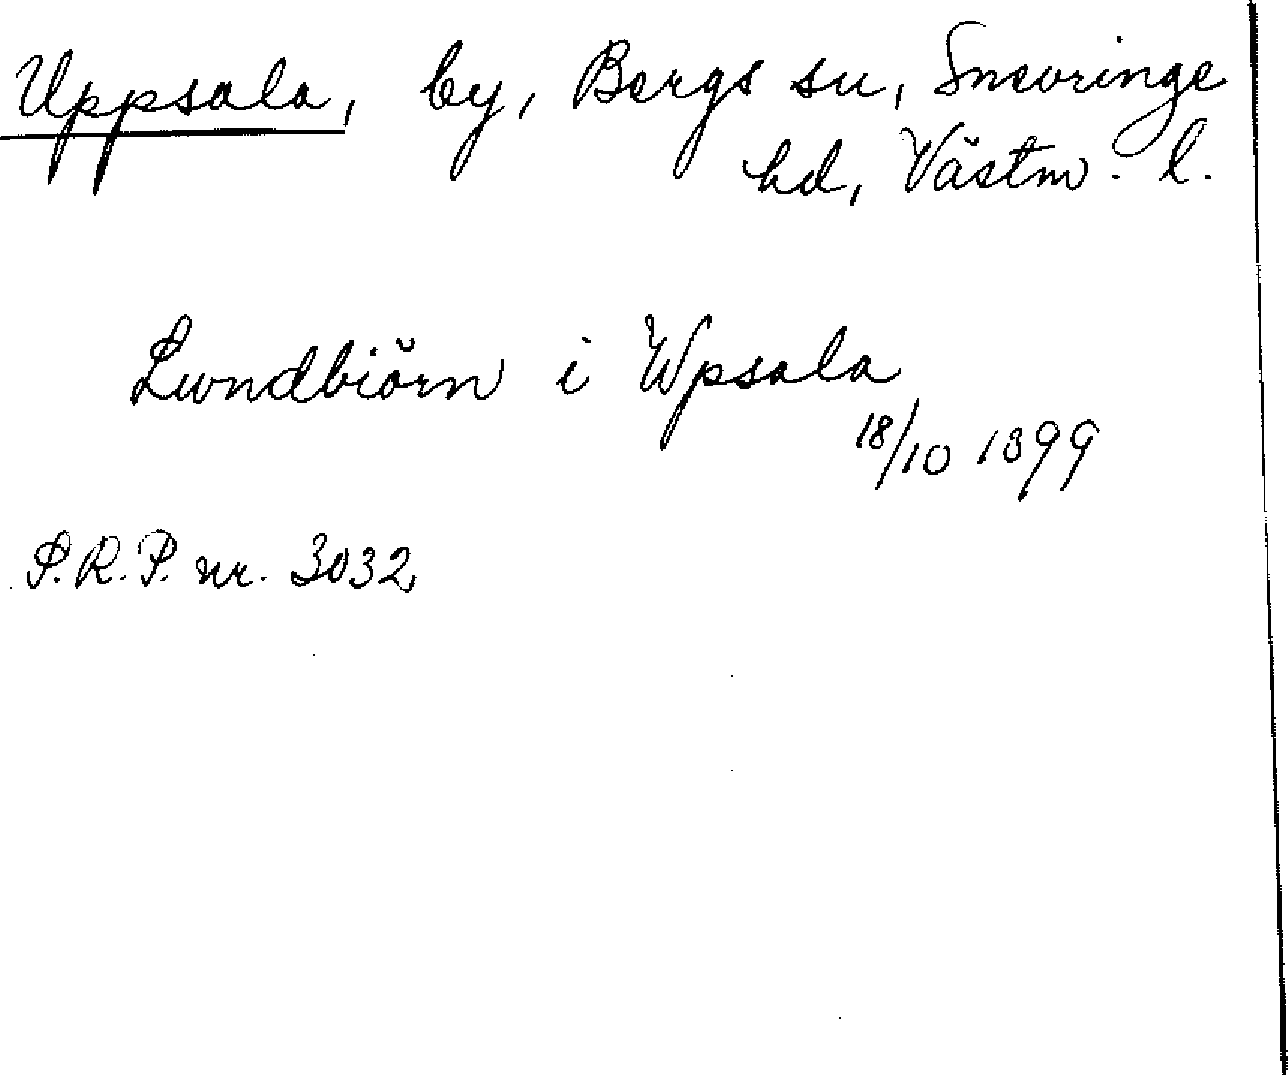 Uppsala, by, Bergs sn, Snevringe
hd, Västm. l.
Lwndbiörn i Wpsala
18/10 1399
S.R.P. nr. 3032